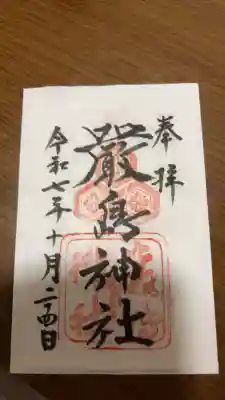 奉拝
嚴島神社
令和七年十月二十四日